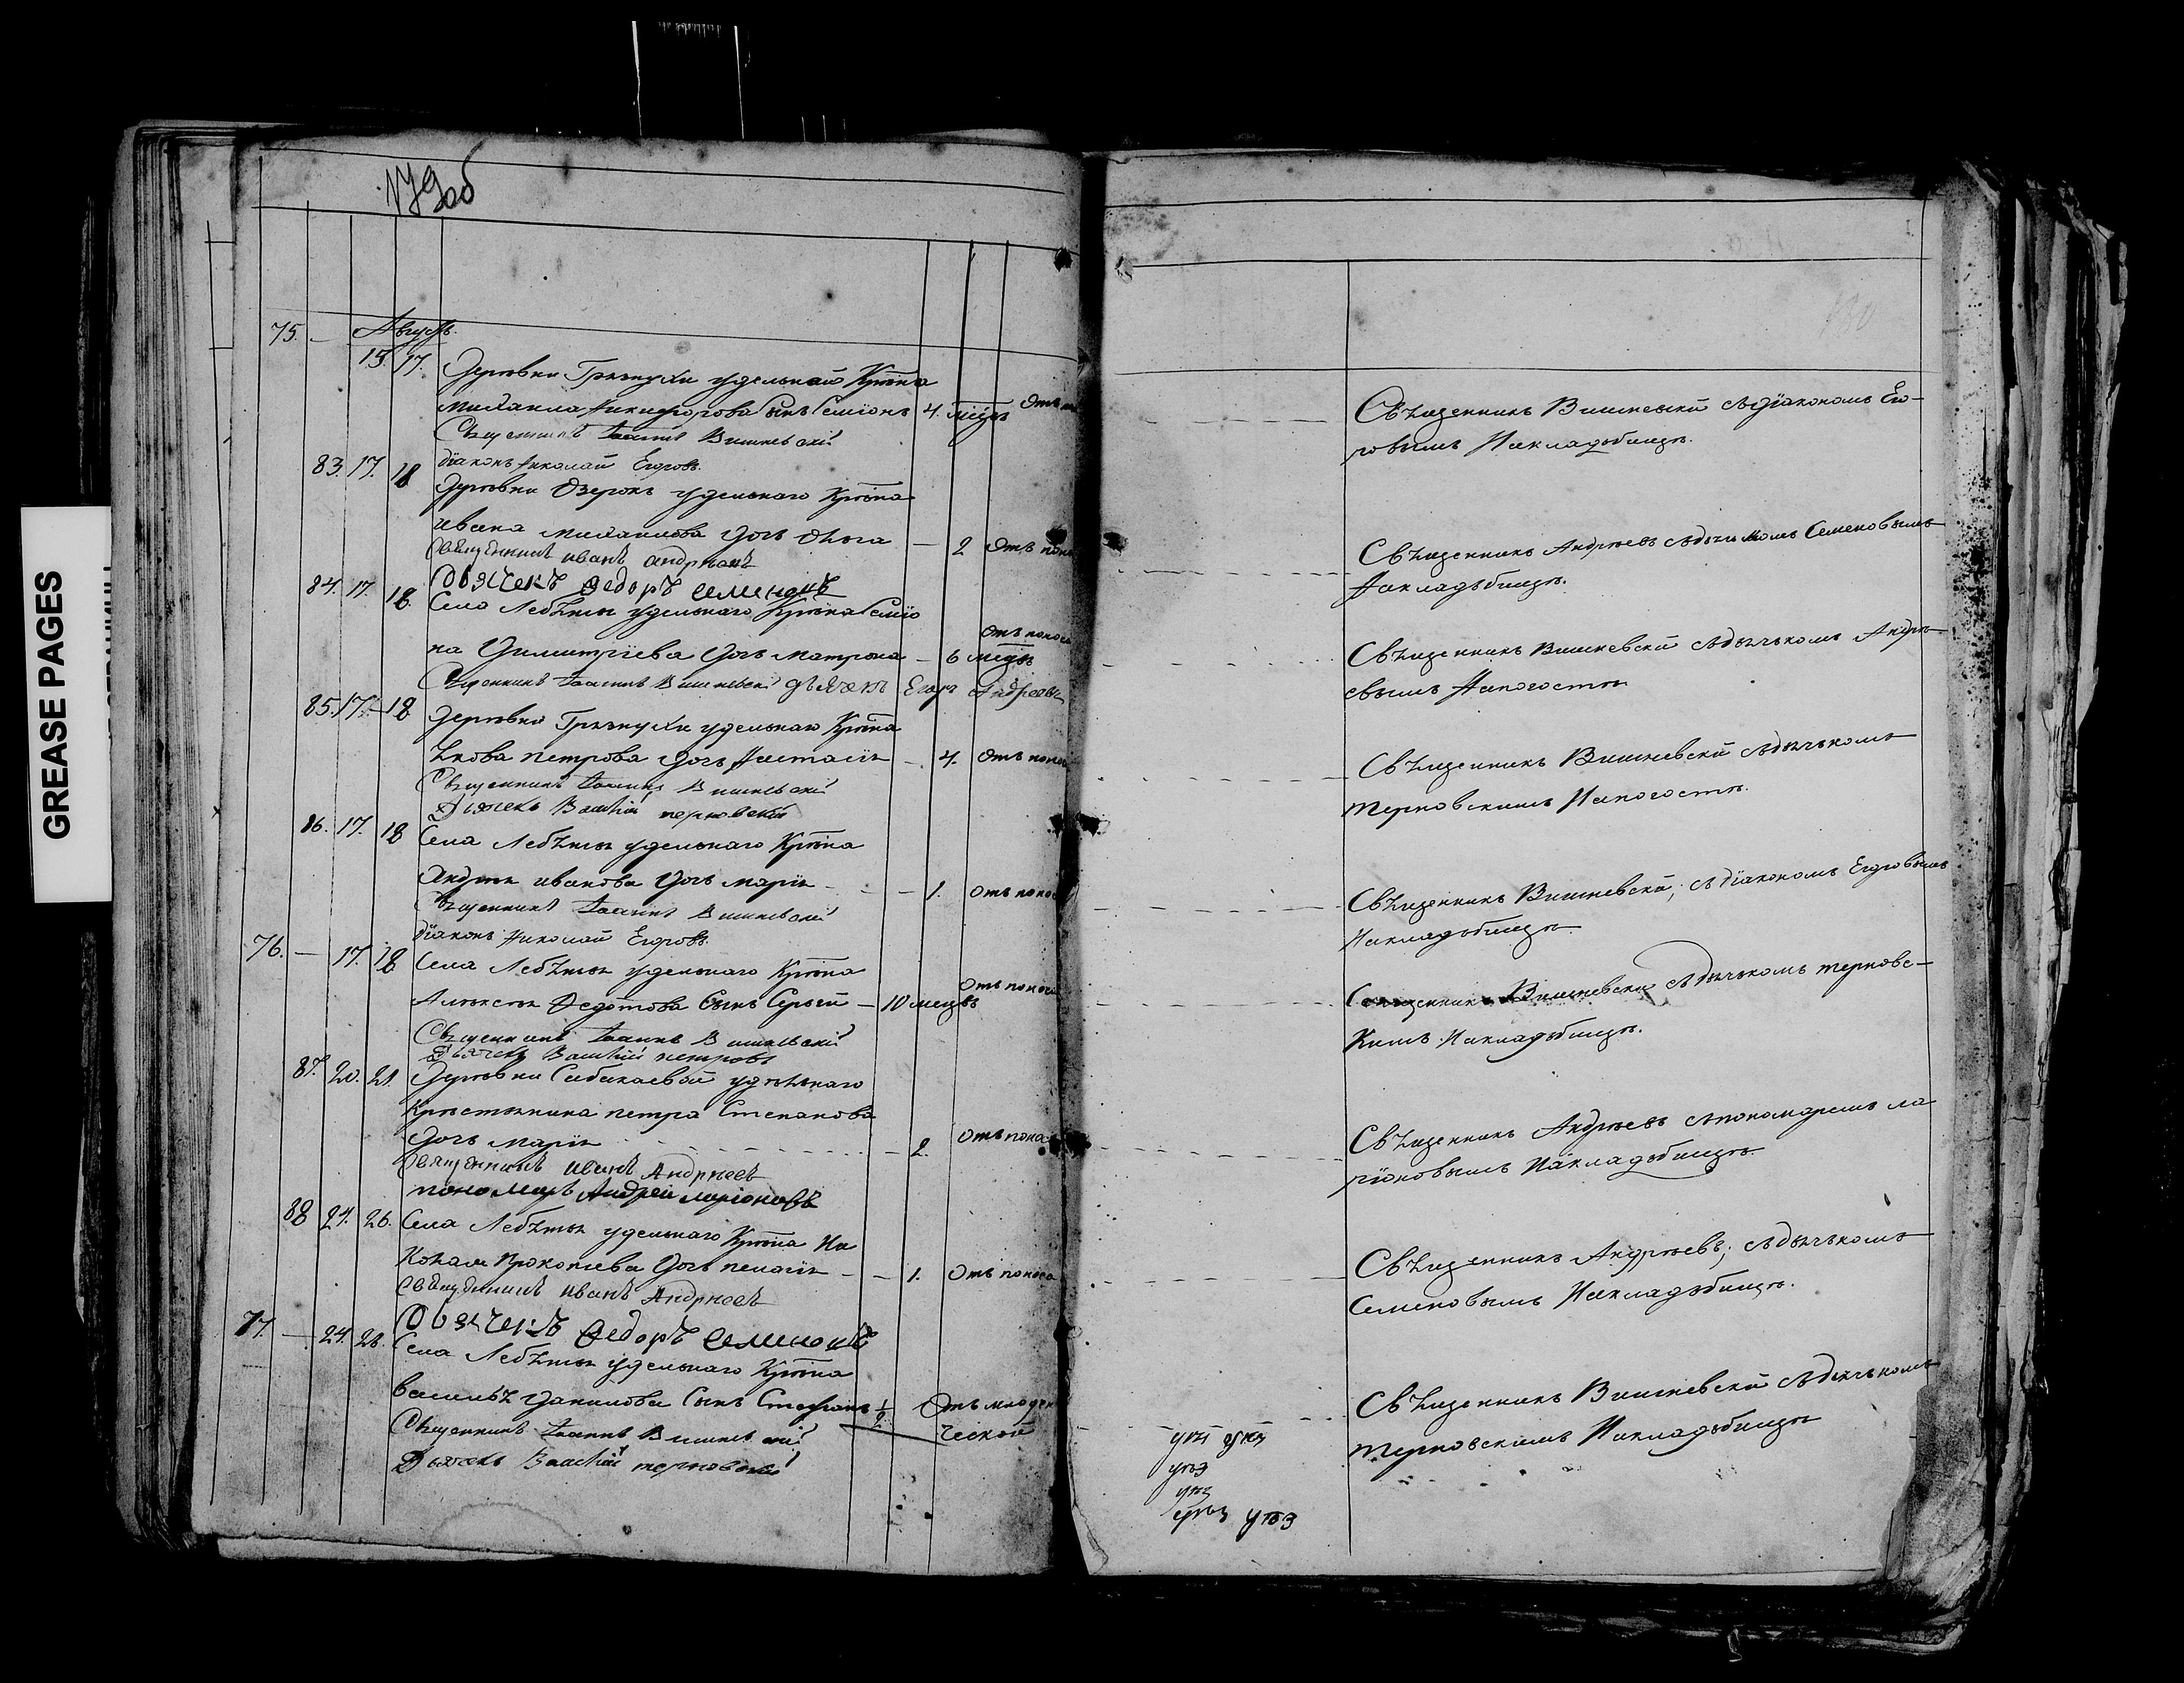 179 об
GREASE PAGES
75. — Августъ.
15. 17. Деревни Грязнухи удельнаго Кр̅тна
Михаила Никифорова Сынъ Семіонъ 4. мцов Отъ по
Священникъ Іоаннъ Вишневскій
діаконъ Николай Егоровъ.
83. 17. 18 Деревни Озерокъ удельнаго Кр̅тна
ивана михаилова дочь Ольга — 2 Отъ поно
Священникъ иванъ андриавъ
Дьячекъ Федоръ семионъ
84. 17. 18. Села Лебяжья удельнаго Кр̅тна Семіо
на Димитріева дочь матрона — 6 мецов Отъ поноса
Священникъ Іоаннъ Вишневскі дьячекъ Егоръ Андреевъ
85. 17. — 18 Деревни Грязнухи удельнаго Кр̅тна
Якова петрова дочь Настасія — 4. Отъ поноса
Священникъ Іоаннъ Вишневскій
Дьячекъ Василій терновскій
86. 17. 18 Села Лебяжья удельнаго Кр̅тна
Андрея иванова дочь марія — 1. Отъ поноса
Священникъ Іоаннъ Вишневскій
діаконъ Николай Егоровъ.
76. — 17. 18 Села Лебяжья удельнаго Кр̅тна
Алексея Федотова Сынъ Сергей — 10 мецов Отъ поноса
Священникъ Іоаннъ Вишневскій
Дьячекъ Василій петровъ
87. 20. 21. Деревни Сабакаевой удельнаго
Крестьянина петра Степанова
дочь марія — 2. Отъ поно
Священникъ иванъ Андреевъ
пономарь Андрей ларіоновъ
88 24. 26. Села Лебяжья удельнаго Кр̅тна
Прокопіева дочь пелагія — 1. Отъ поноса
Священникъ иванъ Андреевъ
Дьячекъ Федоръ Семионъ
77. — 24. 26. Села Лебяжья удельнаго Кр̅тна
василья Данилова Сынъ Стефанъ 1/2 Отъ младен
ческой
Священникъ Іоаннъ Вишневскій
Дьячекъ Василій терновскій
Священникъ Вишневскій съ діакономъ Его-
ровымъ На кладбище.
Священникъ Андреевъ съ дьячкомъ Семеновымъ
На кладбище.
Священникъ Вишневскій съ дьячкомъ Андре-
евымъ На погосте
Священникъ Вишневскій съ дьячкомъ
терновскимъ На погосте.
Священникъ Вишневскій, съ діакономъ Егоровымъ
На кладбище
Священникъ Вишневскій съ дьячкомъ терновс-
кимъ На кладбище.
Священникъ Андреевъ съ пономаремъ ла
ріоновымъ На кладбище.
Священникъ Андреевъ; съ дьячкомъ
Семеновымъ На кладбище.
Священникъ Вишневскій съ дьячкомъ
терновскимъ На кладбище